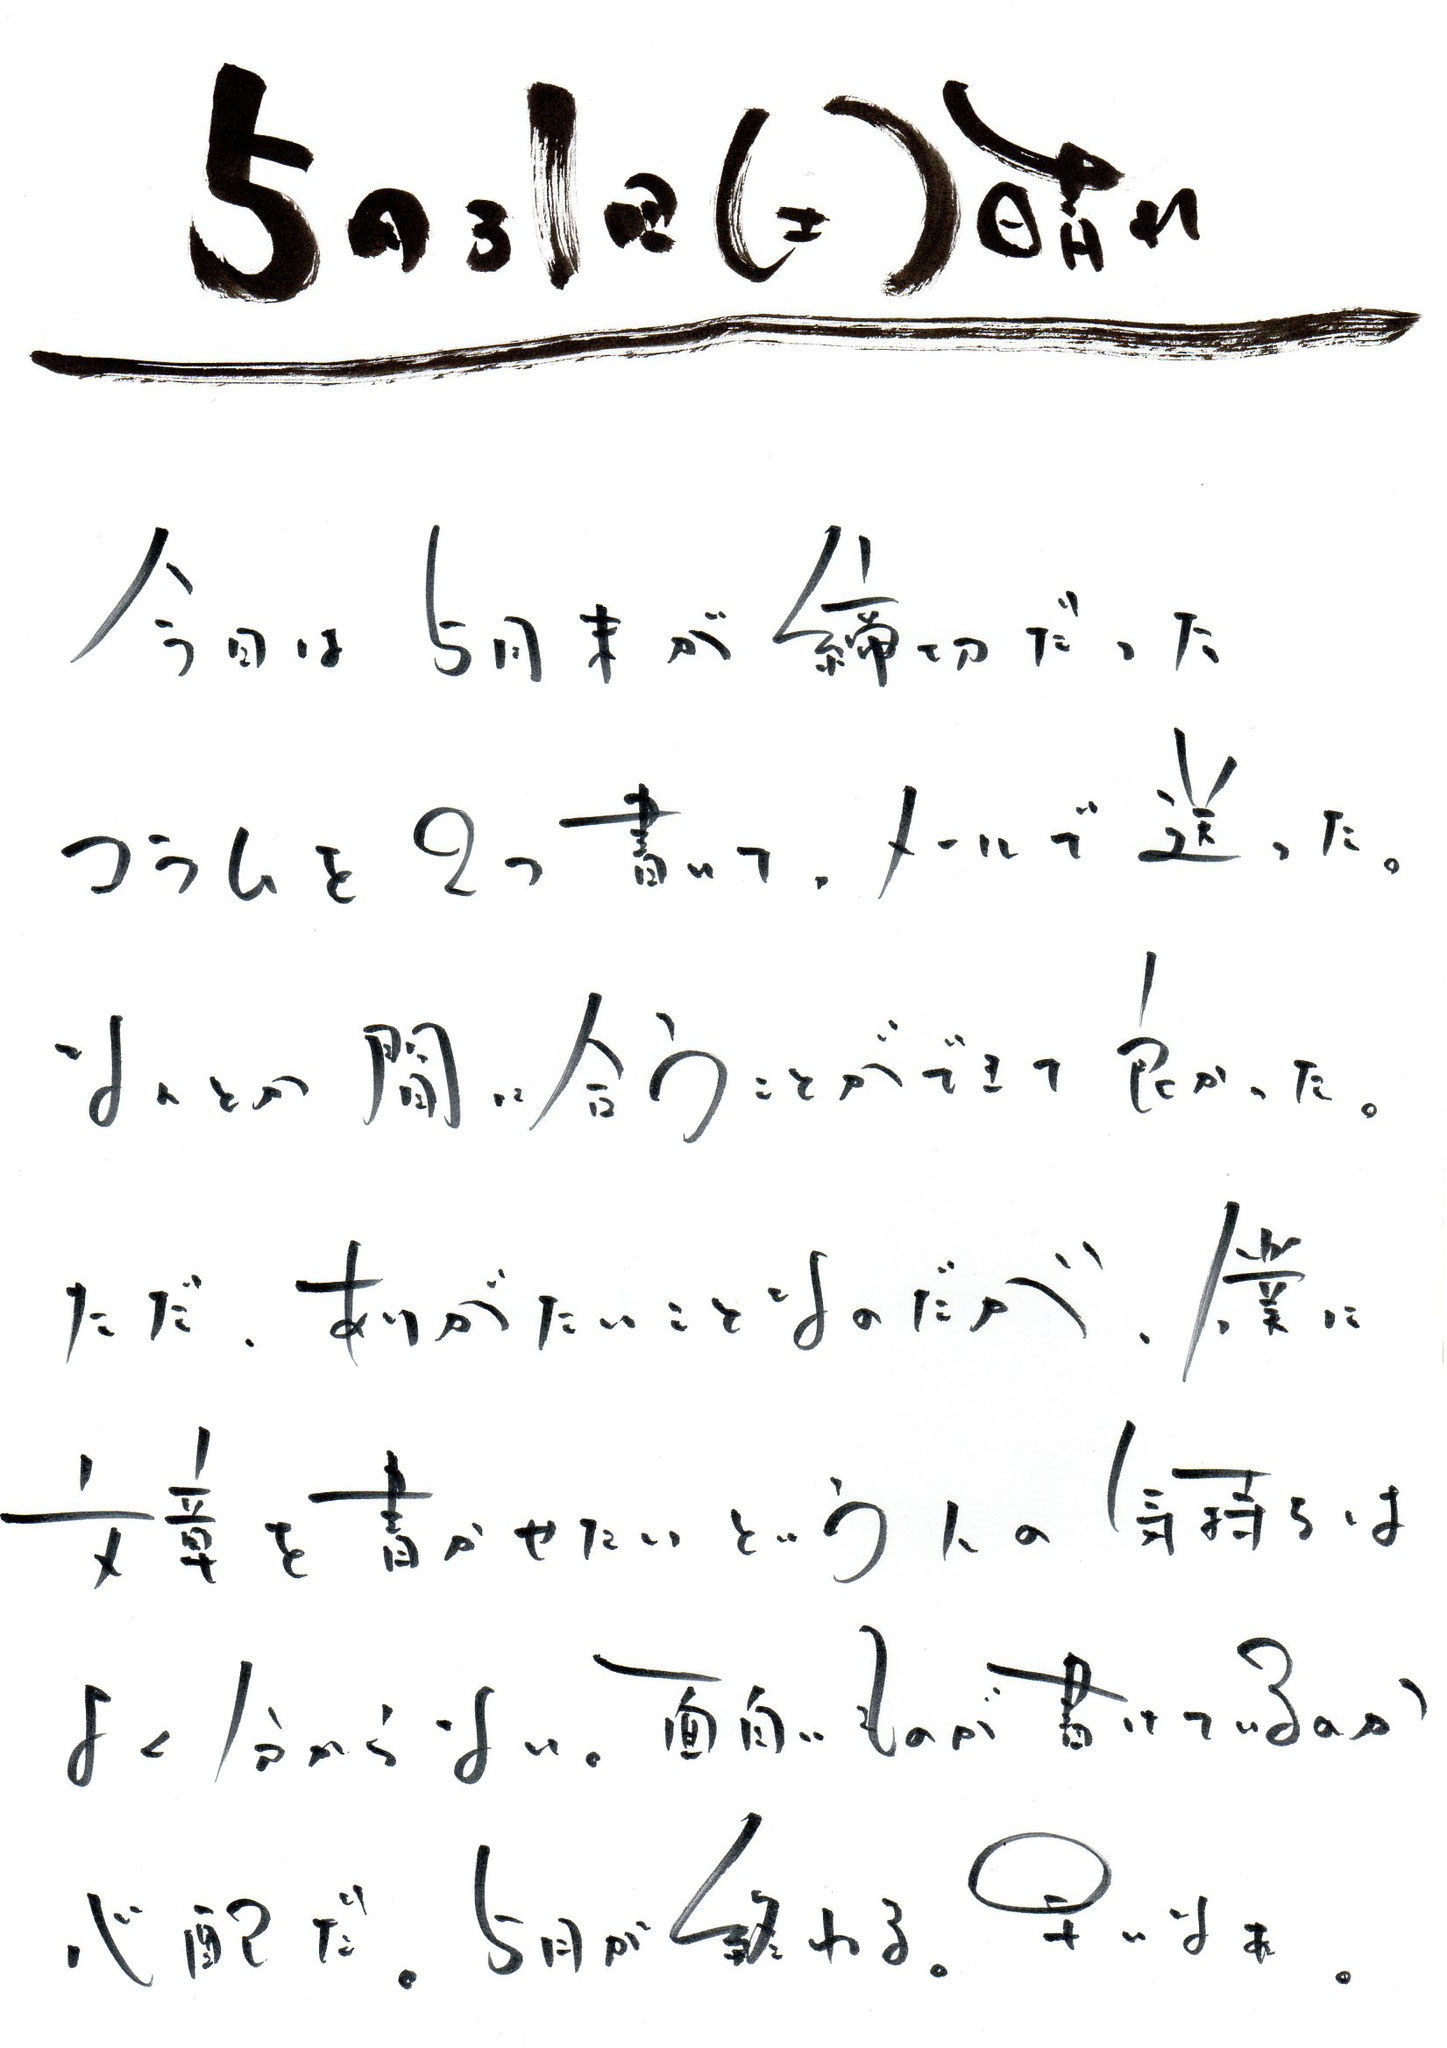 5月31日(土)晴れ
今日は5月末が締切だった
コラムを2つ書いて、メールで送った。
なんとか間に合うことができて良かった。
ただ、ありがたいことなのだが、僕に
文章を書かせたいという人の気持ちは
よく分からない。面白いものが書けているのか
心配だ。5月が終わる。早いなあ。